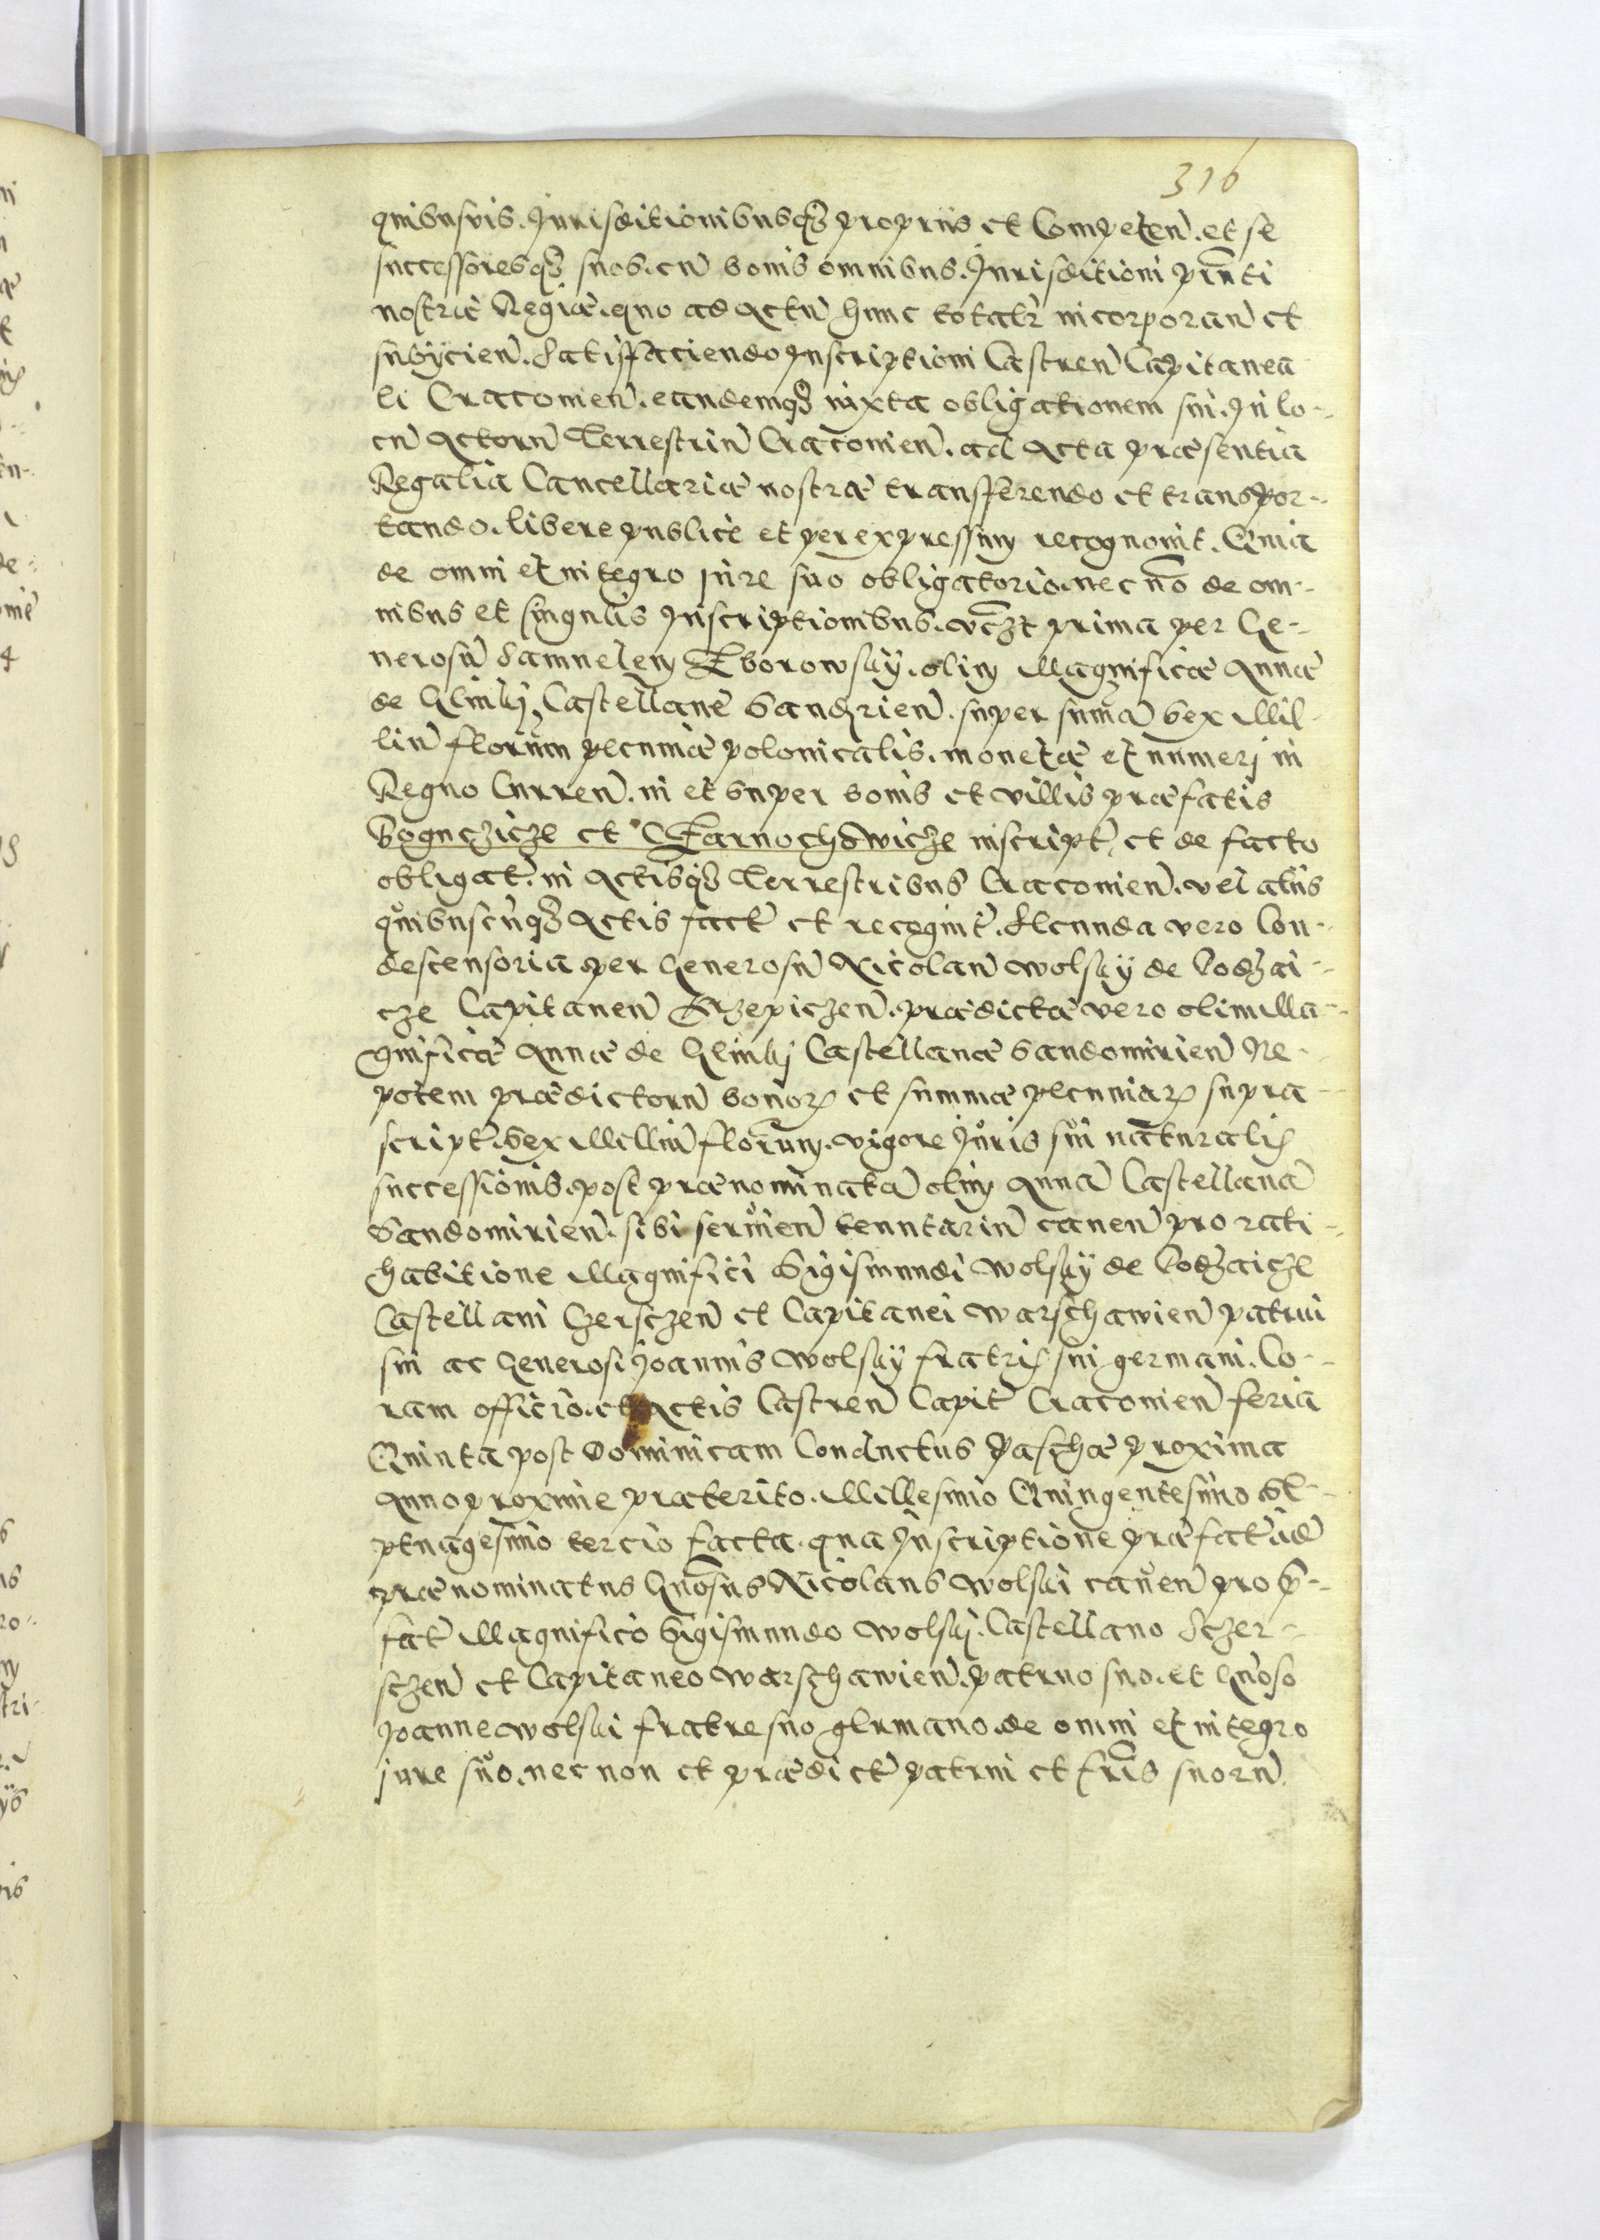 316
quibusvis. Jurisditionibusq3 propriis et Competen̄. et se
successoresq3 suos. cū bonis omnibus. Jurisditioni pn̄ti
nostræ Regiæ. quo ad Actū hunc totalr̄ incorporan̄ et
subÿcien̄. Satisfaciendo Inscriptioni Castren̄ Capitanea
li Cracovien̄. eandemq3 iuxta obligationem sui. In lo-
cū Actorū Terrestriū Cracovien̄. ad Acta præsentia
Regalia Cancellariæ nostræ transfferendo et transpor-
tando. libere publice et per expressum recognovit. Quia
de omni et integro jure suo obligatorio. nec nō de om-
nibus et singulis Inscriptionibus. vcz̄t prima per Ge-
nerosū Samuelem Zborowskÿ. olim Magnificæ Annæ
de Castellanæ Sandrien̄. super sum̄ā Sex Mil-
liū florūm pecuniæ polonicalis. monetæ et numerj in
Regno Curren̄. in et super bonis et villis præfatis
Boguczicze et Tarnochowicze inscript̄. et de facto
obligat̄. in Actisq3 Terrestribus Cracovien̄. vel alÿs
quibuscūq3 Actis fact̄ et recognit̄. Secunda vero Con-
descensoria per Generosū Nicolaū Wolskÿ de Podhai-
cze Capitaneū Krzepiczen̄. prædictæ vero olim Ma-
gnificæ Annæ de Castellanæ Sandomirien̄ Ne-
potem prædictorū bonorꝝ et summæ pecuniarꝝ supra
script̄. Sex Milliū florenum. vigore Juris sui naturalis
successionis. post prænominatā olim Annā Castellanā
Sandomirien̄. sibi servien̄ caven̄ pro rati-
habitione Magnifici Sigismundi Wolskÿ de Podhaicze
Castellani Czersczen̄ et Capitanei Warschawien̄ patrui
sui ac Generosi Joannis Wolskÿ fratris sui germani. Co-
ram officio. et Actis Castren̄ Capit̄ Cracovien̄ feria
Quinta post Dominicam Conductus Paschæ proxima
Anno proxime præterito. Millesimo Quingentesimo Se-
ptuagesimo tercio facta. qua Inscriptione præfat̄ idē
prænominatus Gn̄osus Nicolaus Wolski caven̄ pro p̄-
fat̄ Magnifico Sigismundo Wolskÿ. Castellano Sczer-
sczen̄ et Capitaneo Warschawien̄. patruo suo. et Gn̄oso
Joanne Wolski fratre suo germano. de omni et integro
jure suo. nec non et prædict̄ patrui et fr̄is suorū